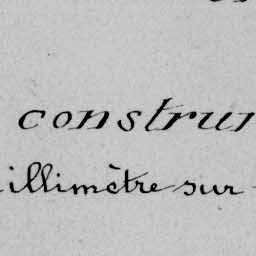 constru
illimètre sur